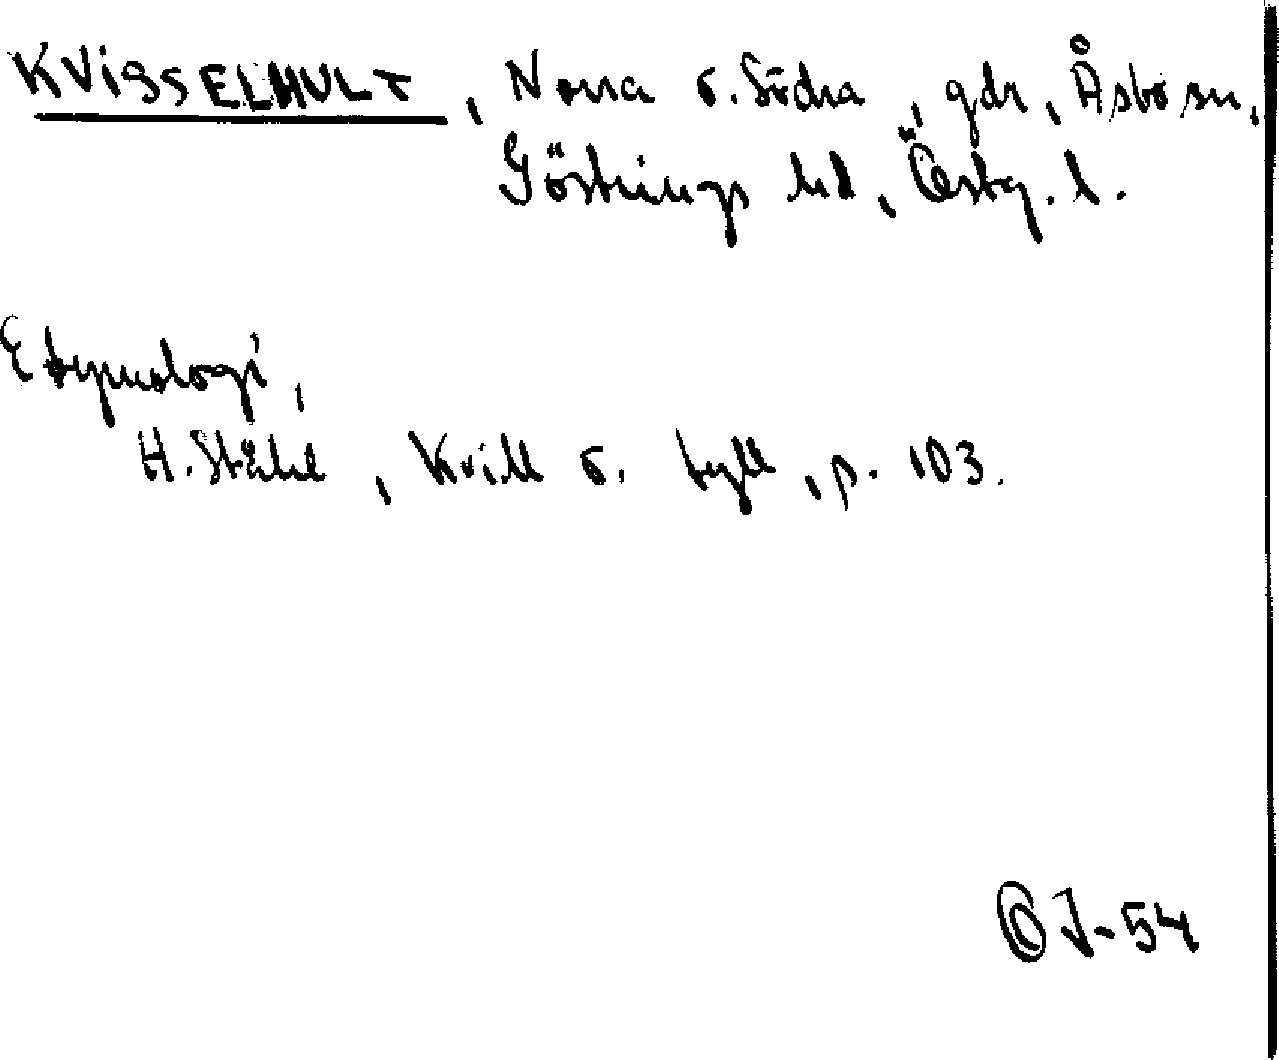 KVISSELHULT, Norra o. Södra, gdr, Åsbo sn,
Göstrings hd, Östg. l.
Etymologi,
H. Ståhl, Kvill o. tyll, p. 103.
ÖJ-54